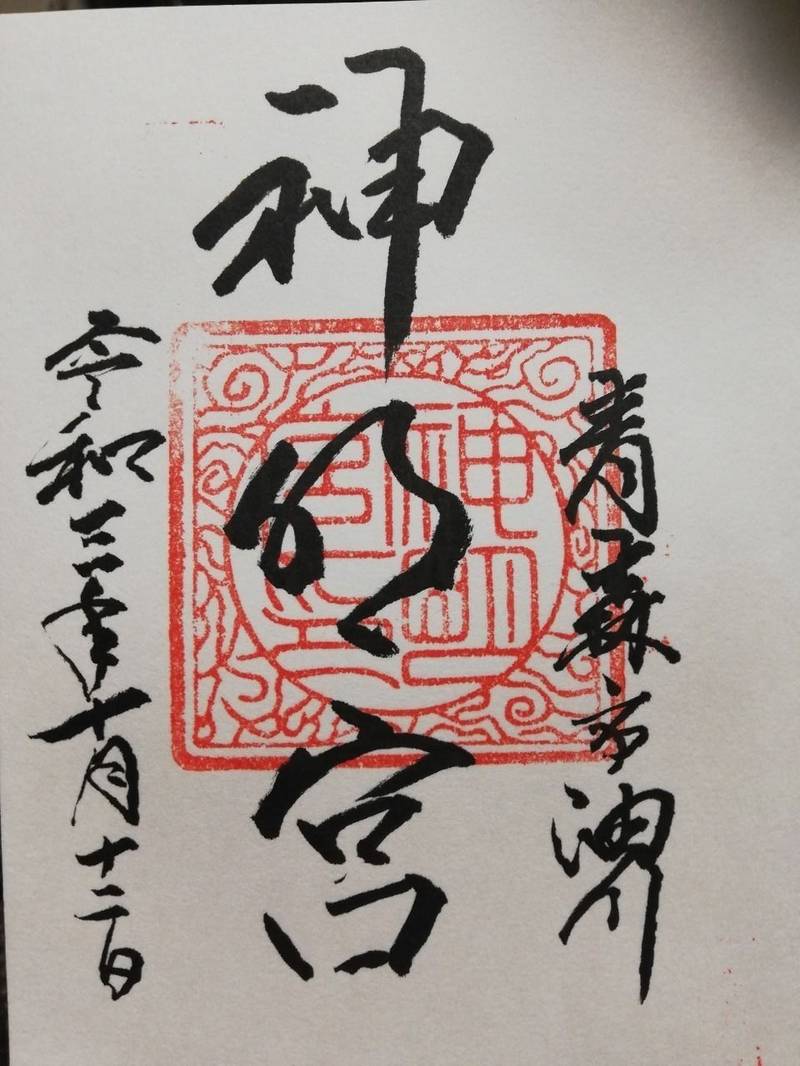 青森市油川
神明宮
神明宮之印
令和三年十月十二日